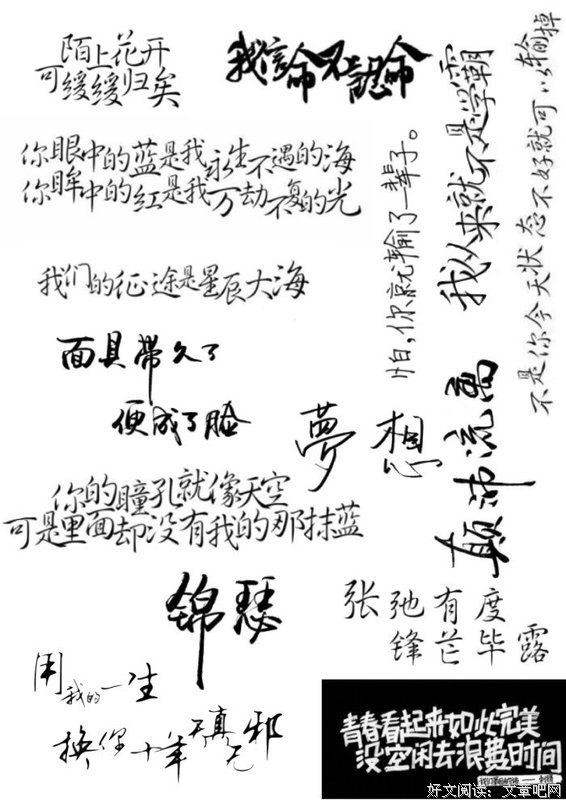 陌上花开
可缓缓归矣
我信命不认命
你眼中的蓝是我永生不遇的海
你眸中的红是我万劫不复的光
我们的征途是星辰大海
怕,你就输了一辈子。
我从来就不是学霸
不是你今天状态不好就可以输掉
面具带久了
便成了脸
夢想
颠沛流离
你的瞳孔就像天空
可是里面却没有我的那抹蓝
锦瑟
张弛有度
锋芒毕露
用我的一生
换你十年天真无邪
青春看起来如此完美
没空闲去浪费时间
好文阅读:文章吧网